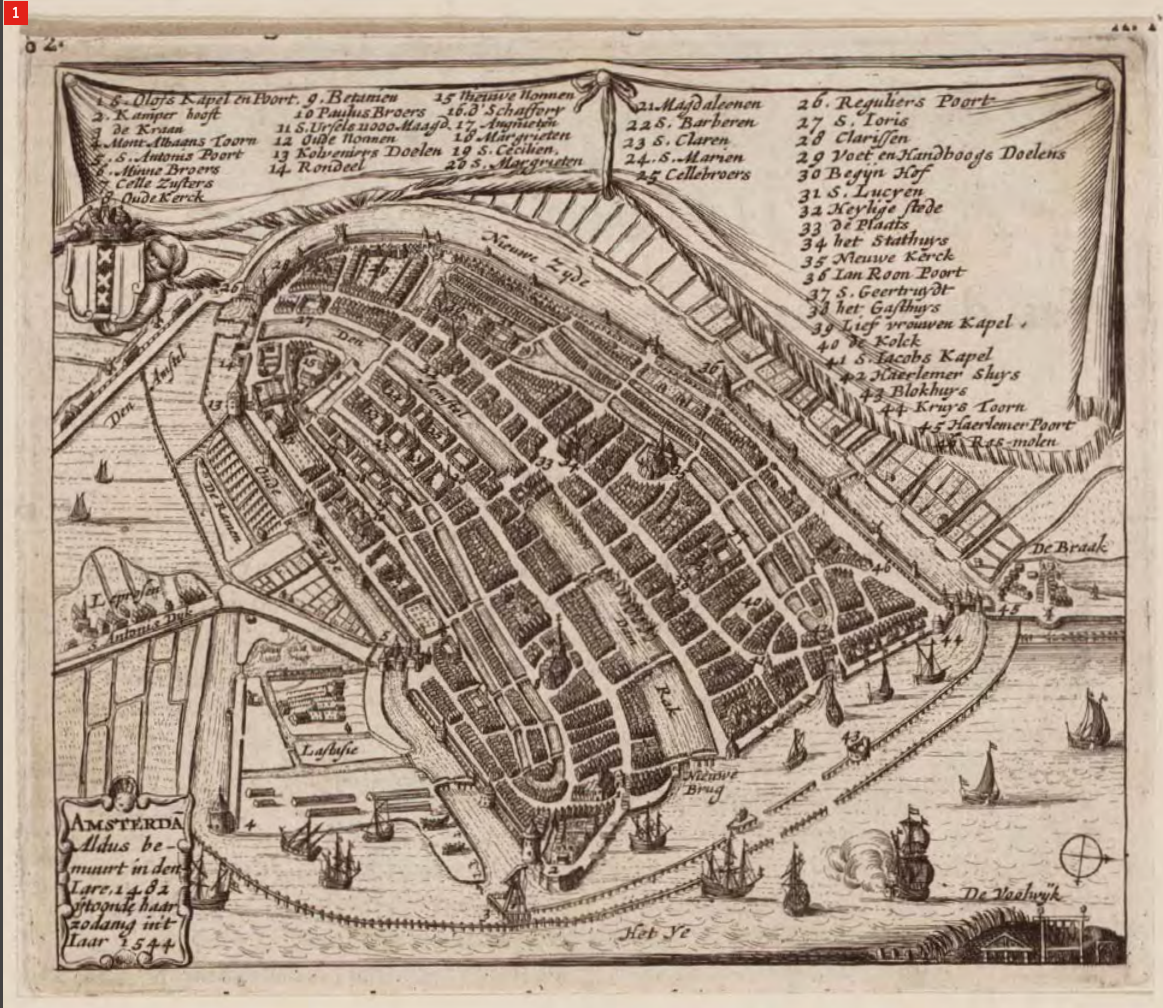 1
2.
1 S. Olofs Kapel en Poort.
2. Kamper hooft
3 de Kraan
4 Mont Albaans Toorn
5. S. Antonis Poort
6. Minne Broers
7 Celle Zusters
8. Oude Kerck
9. Betanien
10 Paulus Broers
11 S. Ursels 11000 Maagd.
12 Oude Nonnen
13 Kolveniers Doelen
14 Rondeel
15 Nieuwe Nonnen
16. d'Schaffery
17 Angnieten
18 Margrieten
19 S. Cecilien.
20 S. Margrieten
21 Magdaleenen
22 S. Barberen
23 S. Claren
24. S. Marien
25 Cellebroers
26. Reguliers Poort
27 S. Ioris
28 Clarissen
29 Voet en Handboogs Doelens
30 Begijn Hof
31 S. Lucyen
32 Heylige stede
33 de Plaats
34 het Stathuys
35 Nieuwe Kerck
36 Ian Roon Poort
37 S. Geertruydt
38 het Gasthuys
39 Lief vrouwen Kapel
40 de Kolck
41 S. Iacobs Kapel
42 Haerlemer Sluys
43 Blokhuys
44 Kruys Toorn
45 Haerlemer Poort
46 Ras-molen
Nieuwe Zyde
26
27
Den
Amstel
Den
Amstel
14
15
13
36
33
34
Oude
Zyde
De Ramen
De Braak
46
45
44
Leprosen
S. Antonis Dyk
5
Lastasie
Rak
43
Nieuwe
Brug
4
2
3
AMSTERDA
Aldus be-
muurt in den
Iare, 1482
vertoonde haar
zodanig in't
Iaar 1544
De Voolwijk
Het Ye